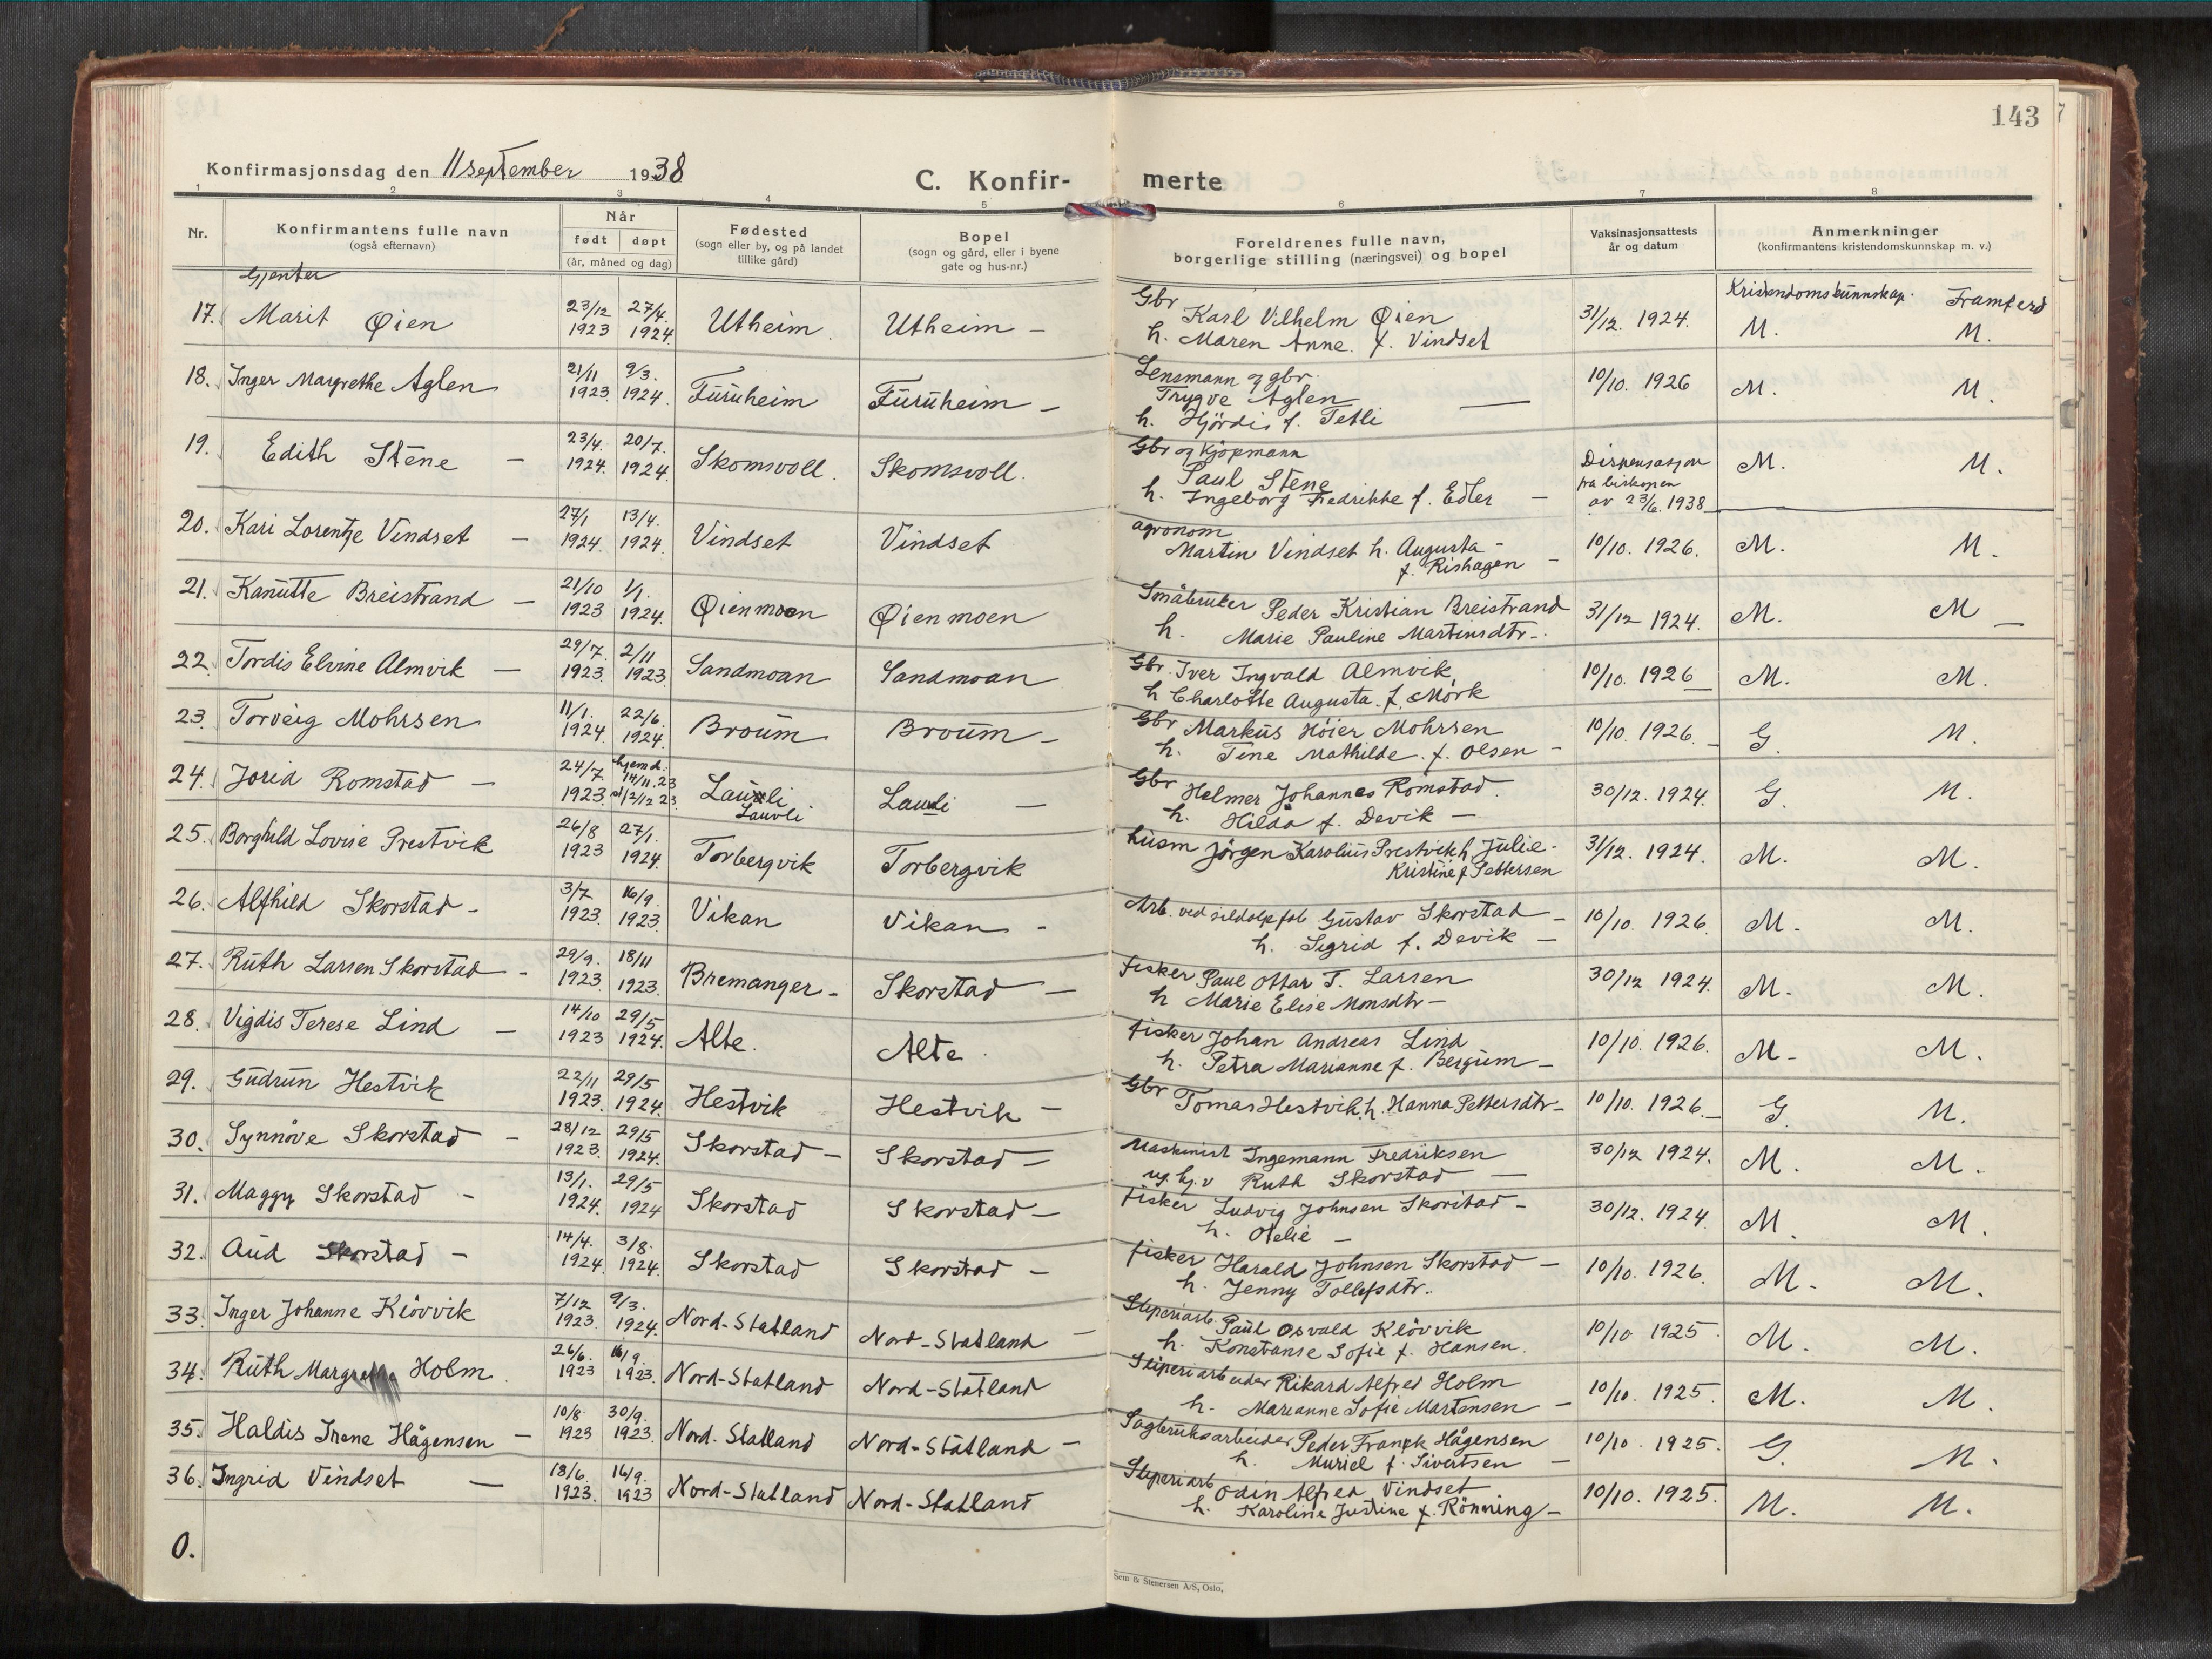 143
Konfirmasjonsdag den 11 september 1938
C. Konfir- merte
1 2 3 4 5 6 7 8
Nr. Konfirmantens fulle navn (også efternavn) Når født døpt (år, måned og dag) Fødested (sogn eller by, og på landet tillike gård) Bopel (sogn og gård, eller i byene gate og hus-nr.) Foreldrenes fulle navn, borgerlige stilling (næringsvei) og bopel Vaksinasjonsattests år og datum Anmerkninger (konfirmantens kristendomskunnskap m. v.)
Gjenter
Kristendomskunnskap. Framferd
17. Marit Øien 23/12 1923 27/4. 1924. Utheim. Utheim - Gbr Karl Vilhelm Øien h. Maren Anne. f. Vindset 31/12. 1924. M. M.
18. Inger Margrethe Aglen 21/11 1923. 9/3. 1924. Furuheim Furuheim - Lensmann og gbr. Trygve Aglen h. Hjördis f. Tetli 10/10. 1926 M. M.
19. Edith Stene - 23/4. 1924. 20/7. 1924. Skomsvoll. Skomsvoll. Gbr og kjöpmann Paul Stene h. Ingeborg Fredrikke f. Edler - Dispensasjon fra biskopen av 23/6. 1938 M. M.
20. Kari Lorentze Vindset - 27/1 1924. 13/4. 1924. Vindset Vindset agronom Martin Vindset h. Augusta - f. Rishagen - 10/10. 1926. M. M.
21. Kanutte Breistrand - 21/10 1923 1/1. 1924. Øienmoen Øienmoen Småbruker Peder Kristian Breistrand h. Marie Pauline Martinsdtr. 31/12 1924. M. M
22. Tordis Elvine Almvik - 29/7. 1923. 2/11 1923. Sandmoan Sandmoan Gbr. Iver Ingvald Almvik h Charlotte Augusta f. Mörk 10/10. 1926 M. M.
23. Torveig Mohrsen 11/1. 1924. 22/6. 1924. Broum Broum - Gbr Markus Höier Mohrsen h. Tine Mathilde. f. Olsen - 10/10. 1926. G. M.
24. Jorid Romstad - 24/7 1923. hjemd. 14/11.23 st/2/12 23. Lauvli Lauvli Lauvli - Gbr Helmer Johannes Romstad. h. Hilda f. Devik - 30/12. 1924. G. M.
25. Borghild Lovise Prestvik 26/8 1923 27/1. 1924. Torbergvik Torbergvik husm Jörgen Karolius Prestvik h. Julie Kristine f. Pettersen 31/12. 1924. M. M.
26. Alfhild Skorstad - 3/7 1923. 16/9. 1923. Vikan Vikan - Arb. ved sildoljefab. Gustav Skorstad - h. Sigrid f. Devik - 10/10. 1926. M. M.
27. Ruth Larsen Skorstad - 29/9. 1923. 18/11 1923. Bremanger - Skorstad - fisker Paul Ottar T. Larsen h Marie Elise Monsdtr - 30/12 1924. M. M.
28. Vigdis Terese Lind - 14/10 1923 29/5 1924. Alte. Alte. fisker Johan Andreas Lind h. Petra Marianne f. Bergum - 10/10. 1926. M - M.
29. Gudrun Hestvik 22/11 1923. 29/5 1924. Hestvik Hestvik - Gbr Tomas Hestvik. h. Hanna Pettersdtr - 10/10. 1926. G. M.
30. Synnöve Skorstad - 28/12 1923. 29/5 1924. Skorstad - Skorstad - Maskinist Ingemann Fredriksen ug. hj. v Ruth Skorstad - 30/12 1924. M. M.
31. Maggy Skorstad - 13/1. 1924. 29/5 1924 Skorstad Skorstad - fisker Ludvig Johnsen Skorstad - h. Otelie - 30/12. 1924. M. M.
32. Aud Skorstad - 14/4. 1924. 3/8. 1924. Skorstad Skorstad - fisker Harald Johnsen Skorstad - h. Jenny Tollefsdtr. 10/10. 1926. M. M.
33. Inger Johanne Klövvik 7/12 1923. 9/3. 1924. Nord-Statland Nord-Statland - Sliperiarb. Paul Osvald Klövvik h. Konstanse Sofie f. Hansen. 10/10 1925. M. M.
34. Ruth Margrethe Holm. 26/6. 1923 16/9. 1923. Nord-Statland Nord-Statland Sliperiarbeider Rikard Alfred Holm h. Marianne Sofie Martensen - 10/10. 1925. M. M.
35. Haldis Irene Hågensen - 10/8. 1923 30/9. 1923. Nord-Statland Nord-Statland - Sagbruksarbeider Peder Franck Hågensen h. Muriel f. Sivertsen - 10/10. 1925. G. M.
36. Ingrid Vindset - 18/6. 1923. 16/9. 1923 Nord-Statland Nord-Statland Sliperiarb Odin Alfred Vindset h. Karoline Justine f. Rönning - 10/10. 1925. M. M.
0.
Sem & Stenersen A/S, Oslo.